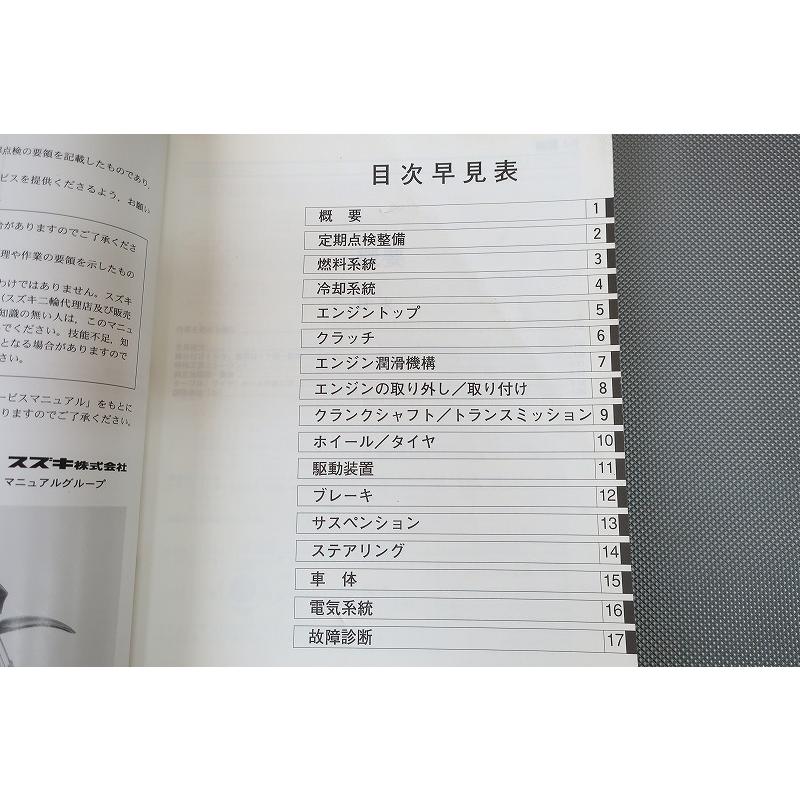 点検の要領を記載したものであり,
ービスを提供くださるよう, お願い
合がありますのでご了承くださ
理や作業の要領を示したもの
わけではありません。スズキ
(スズキ二輪代理店及び販売
知識の無い人は, このマニュ
でください。技能不足, 知
となる場合がありますので
さい。
ービスマニュアル」をもとに
りますのでご了承ください。
スズキ株式会社
マニュアルグループ
目次早見表
概 要 1
定期点検整備 2
燃料系統 3
冷却系統 4
エンジントップ 5
クラッチ 6
エンジン潤滑機構 7
エンジンの取り外し/取り付け 8
クランクシャフト/トランスミッション 9
ホイール/タイヤ 10
駆動装置 11
ブレーキ 12
サスペンション 13
ステアリング 14
車 体 15
電気系統 16
故障診断 17